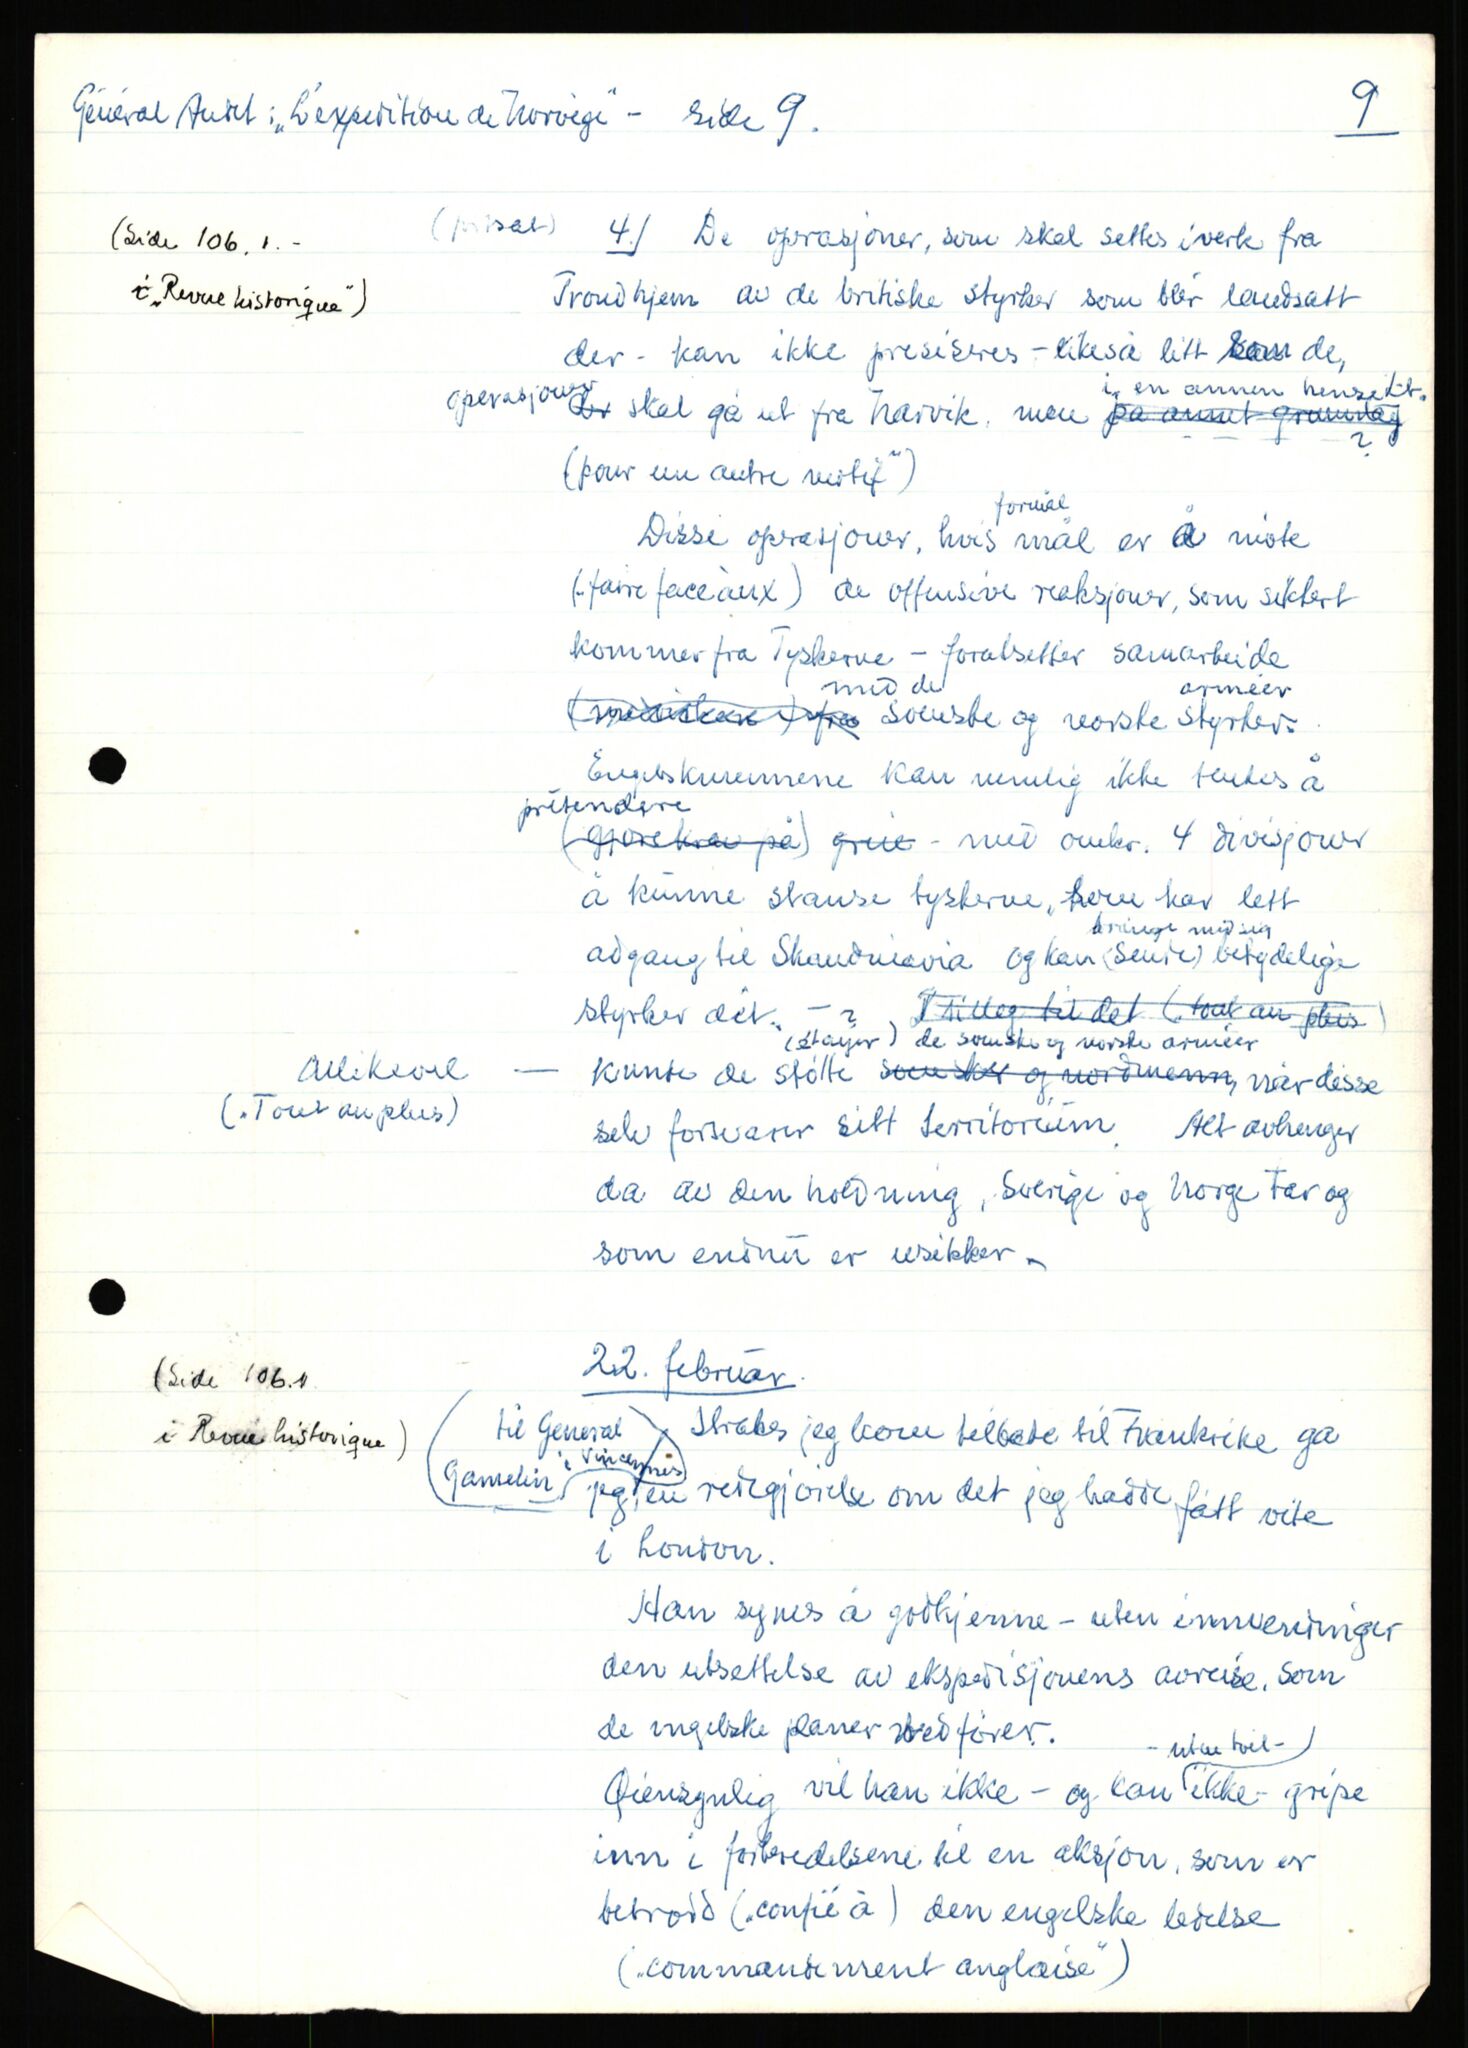 Général Audet: „L'expedition de Norvège" - side 9.
9
(Side 106. 1. -
i „Revue historique")
4./ De operasjoner, som skal settes iverk fra
Trondhjem av de britiske styrker som blir landsatt
der - kan ikke presiseres - likeså litt som de,
operasjoner der skal gå ut fra Narvik. men på annet grunnlag
i en annen henseikt.
?
(pour un autre motif")
formål
Disse operasjoner, hvis mål er å møte
(„faire face aux) de offensive reaksjoner, som sikkert
kommer fra Tyskerne - forutsetter samarbeide
med de
armeer
fra svenske og norske styrker.
Engelskmennene kan nemlig ikke tenkes å
prétendere
(gjøre krav på) greie - med omkr. 4 divisjoner
å kunne stanse tyskerne, som har lett
bringe med sig
adgang til Skandinavia og kan (sende) betydelige
styrker dit. - ? I tilleg til det („tout au plus)
(étayer) de svenske og norske arméer
Allikevel
(„Tout au plus)
— kunde de støtte svensker og nordmenn, når disse
selv forsvarer sitt territorium. Alt avhenger
da av den holdning, Sverige og Norge tar og
som endnu er usikker.
22. februar.
(Side 106. II
i Revue historique)
(til General
Gamelin i Vincennes)
Straks jeg kom tilbake til Frankrike ga
jeg en redegjørelse om det jeg hadde fått vite
i London.
Han synes å godkjenne - uten innvendinger
den utsettelse av ekspedisjonens avreise, som
de engelske planer medfører.
- uten tvil -
Øiensynlig vil han ikke - og kan ikke - gripe
inn i forberedelsene til en aksjon, som er
betrodd („confié à) den engelske ledelse
(„commandement anglaise")